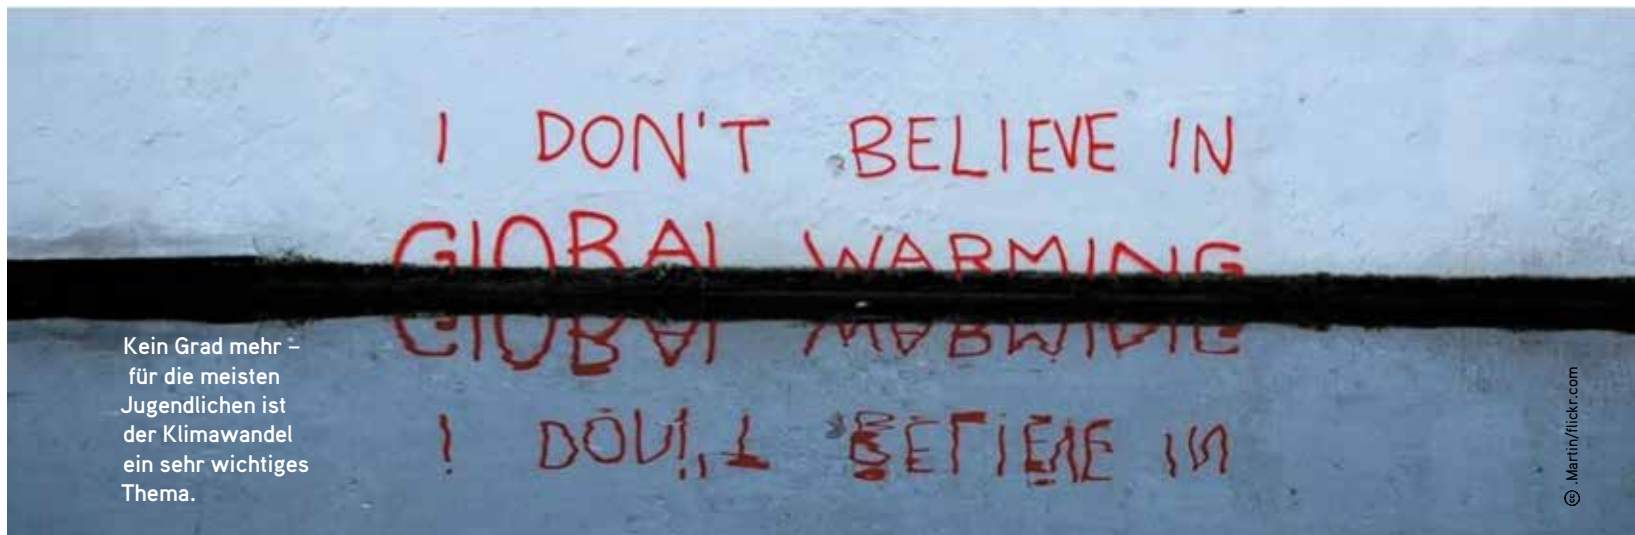 I DON'T BELIEVE IN
GLOBAL WARMING
Kein Grad mehr –
für die meisten
Jugendlichen ist
der Klimawandel
ein sehr wichtiges
Thema.
(cc) .Martin/flickr.com